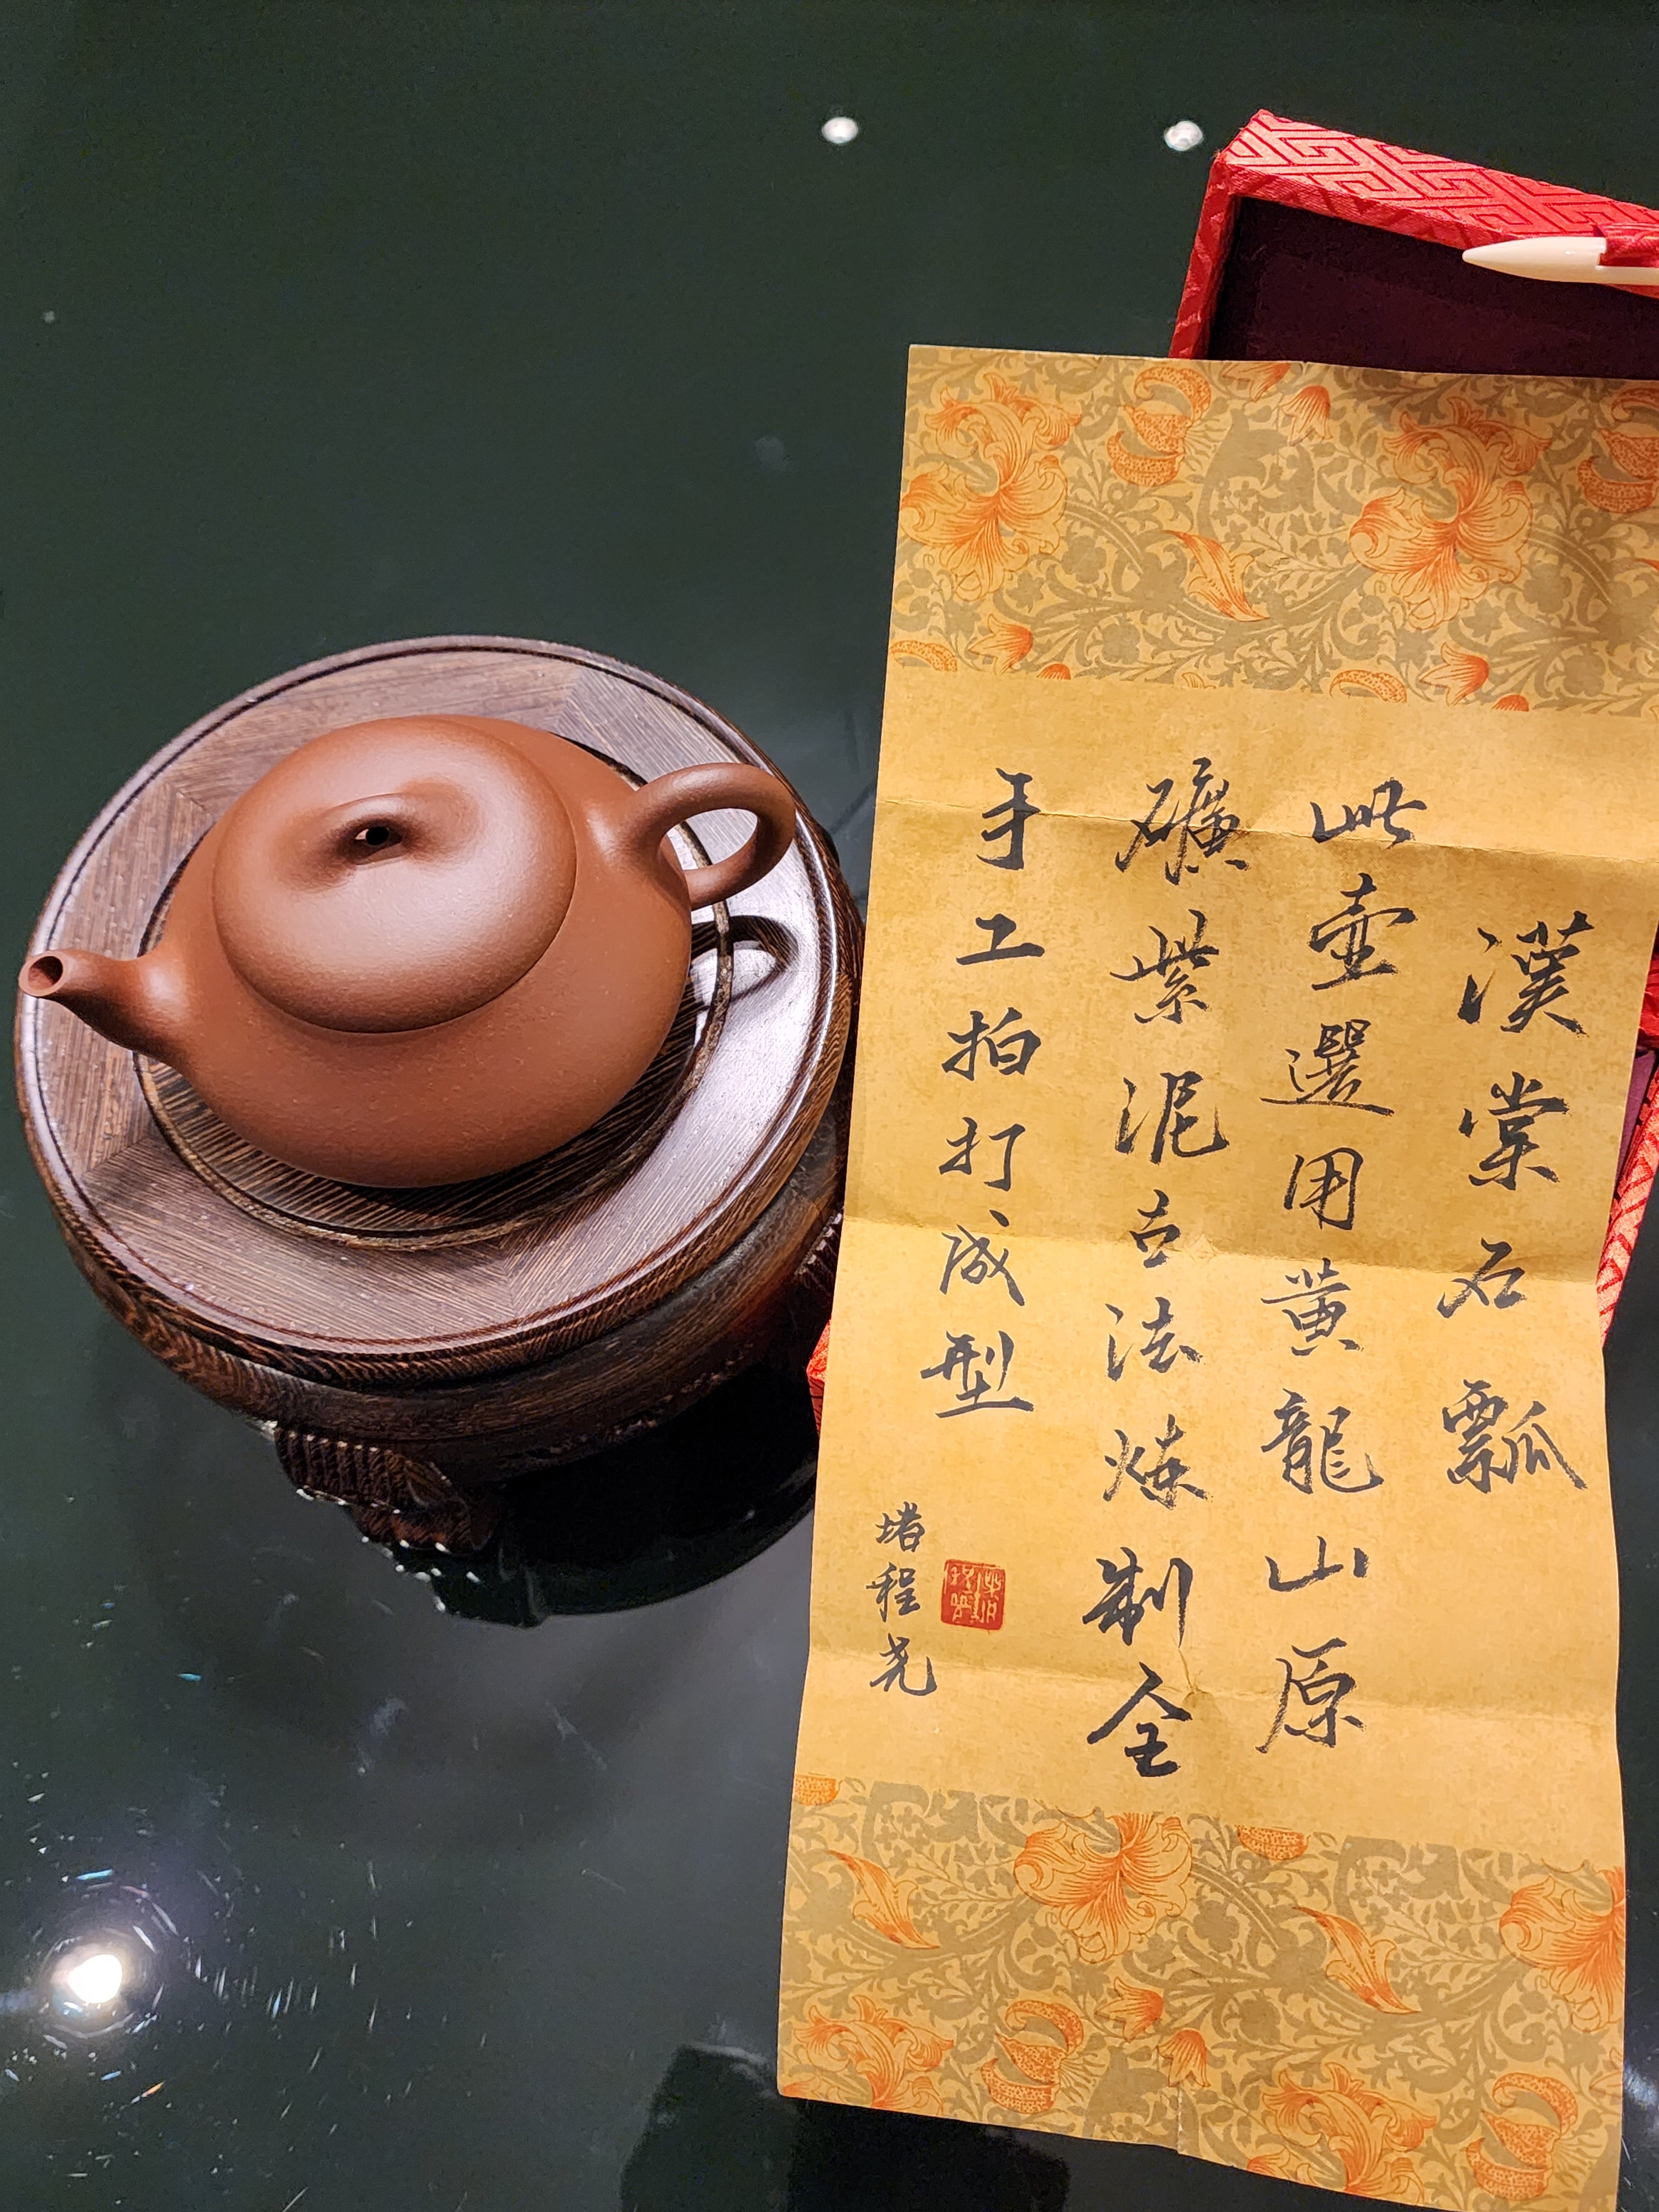 漢棠石瓢
此壺選用黄龍山原
礦紫泥古法炼制全
手工拍打成型
堵程尧